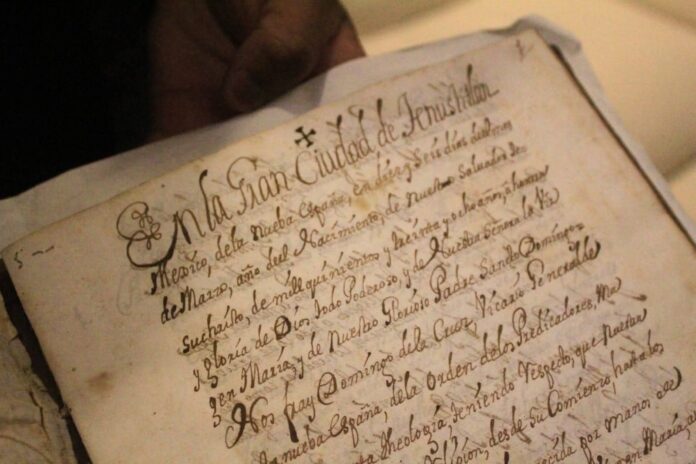 En la Gran Ciudad de Tenustitlan
Mexico, dela nueba España, en diez y seis dias del mes
de Marzo, año del Nacimiento, de nuestro Salvador Je
suchristo, de mill quinientos y sesenta y ocho años, a honra
y Gloria de Dios, todo Poderoso, y de Nuestra Senora la Vir
gen Maria y de Nuestro Glorioso Padre Sancto Domingo
Nos fray Domingo dela Cruz, Vicario General de
la nueba España, dela Orden delos Predicadores, Ma
Theologia, teniendo respecto, que nuestra
Religion, desde su Comienzo, ha
por manos de
Maria,